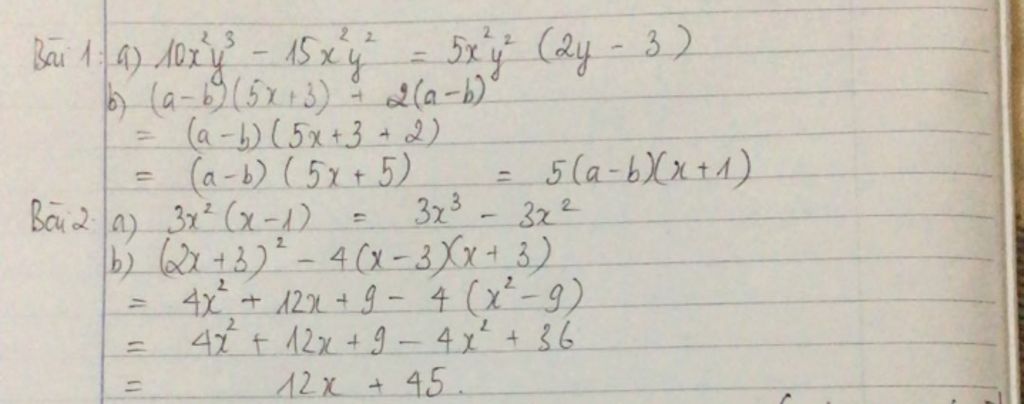 Bài 1: a) 10x²y³ - 15x²y² = 5x²y² (2y - 3)
b) (a-b)(5x+3) + 2(a-b)
= (a-b)(5x+3+2)
= (a-b)(5x+5) = 5(a-b)(x+1)
Bài 2 a) 3x²(x-1) = 3x³ - 3x²
b) (2x+3)² - 4(x-3)(x+3)
= 4x² + 12x + 9 - 4(x²-9)
= 4x² + 12x + 9 - 4x² + 36
= 12x + 45.